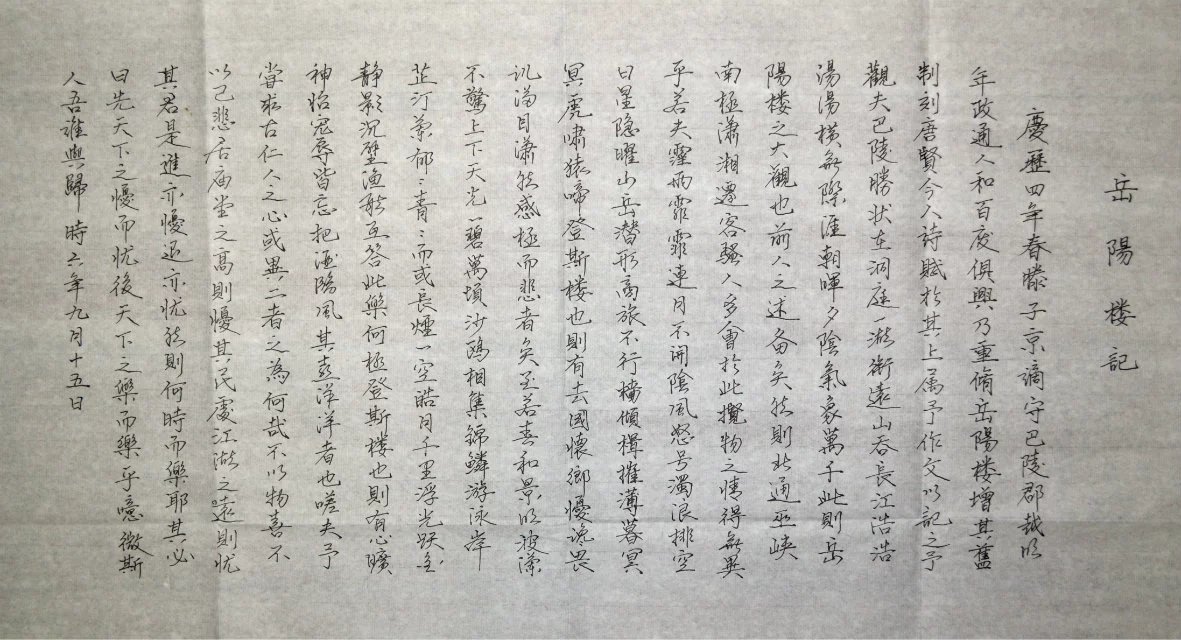 岳陽楼記
慶歷四年春滕子京謫守巴陵郡越明
年政通人和百废俱興乃重脩岳陽楼增其舊
制刻唐賢今人詩賦於其上属予作文以記之予
觀夫巴陵勝状在洞庭一湖衔遠山吞長江浩浩
湯湯横無際涯朝暉夕陰氣象萬千此則岳
陽楼之大觀也前人之述备矣然則北通巫峡
南極瀟湘遷客騷人多會於此攬物之情得無異
乎若夫霪雨霏霏連月不開陰風怒号濁浪排空
日星隐曜山岳潜形商旅不行檣傾楫摧薄暮冥
冥虎啸猿啼登斯楼也則有去國懷鄉憂讒畏
讥滿目潇然感極而悲者矣至若春和景明波瀾
不驚上下天光一碧萬頃沙鸥相集錦鱗游泳岸
芷汀蘭郁〻青〻而或長煙一空皓月千里浮光跃金
静影沉璧渔歌互答此樂何極登斯楼也則有心曠
神怡寵辱皆忘把酒臨風其喜洋洋者也嗟夫予
嘗求古仁人之心或異二者之為何哉不以物喜不
以己悲居庙堂之高則憂其民處江湖之遠則忧
其君是進亦憂退亦忧然則何時而樂耶其必
曰先天下之憂而忧後天下之樂而樂乎噫微斯
人吾誰與歸 時六年九月十五日